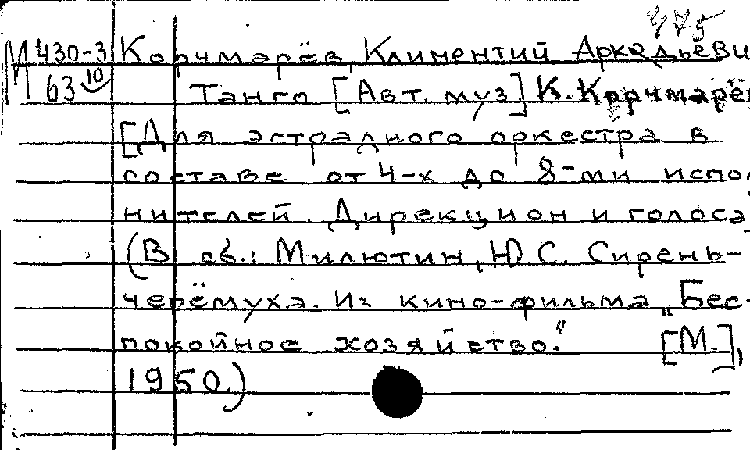 475
М 430-3 Корчмарёв, Климентий Аркадьеви
63 10 Танго [Авт. муз] К. Корчмарё
[Для эстрадного оркестра в
составе от 4-х до 8-ми испол
нителей. Дирекцион и голоса]
(В сб.: Милютин, Ю С. Сирень-
черёмуха. Из кино-фильма „Бес-
покойное хозяйство." [М.],
1950.)